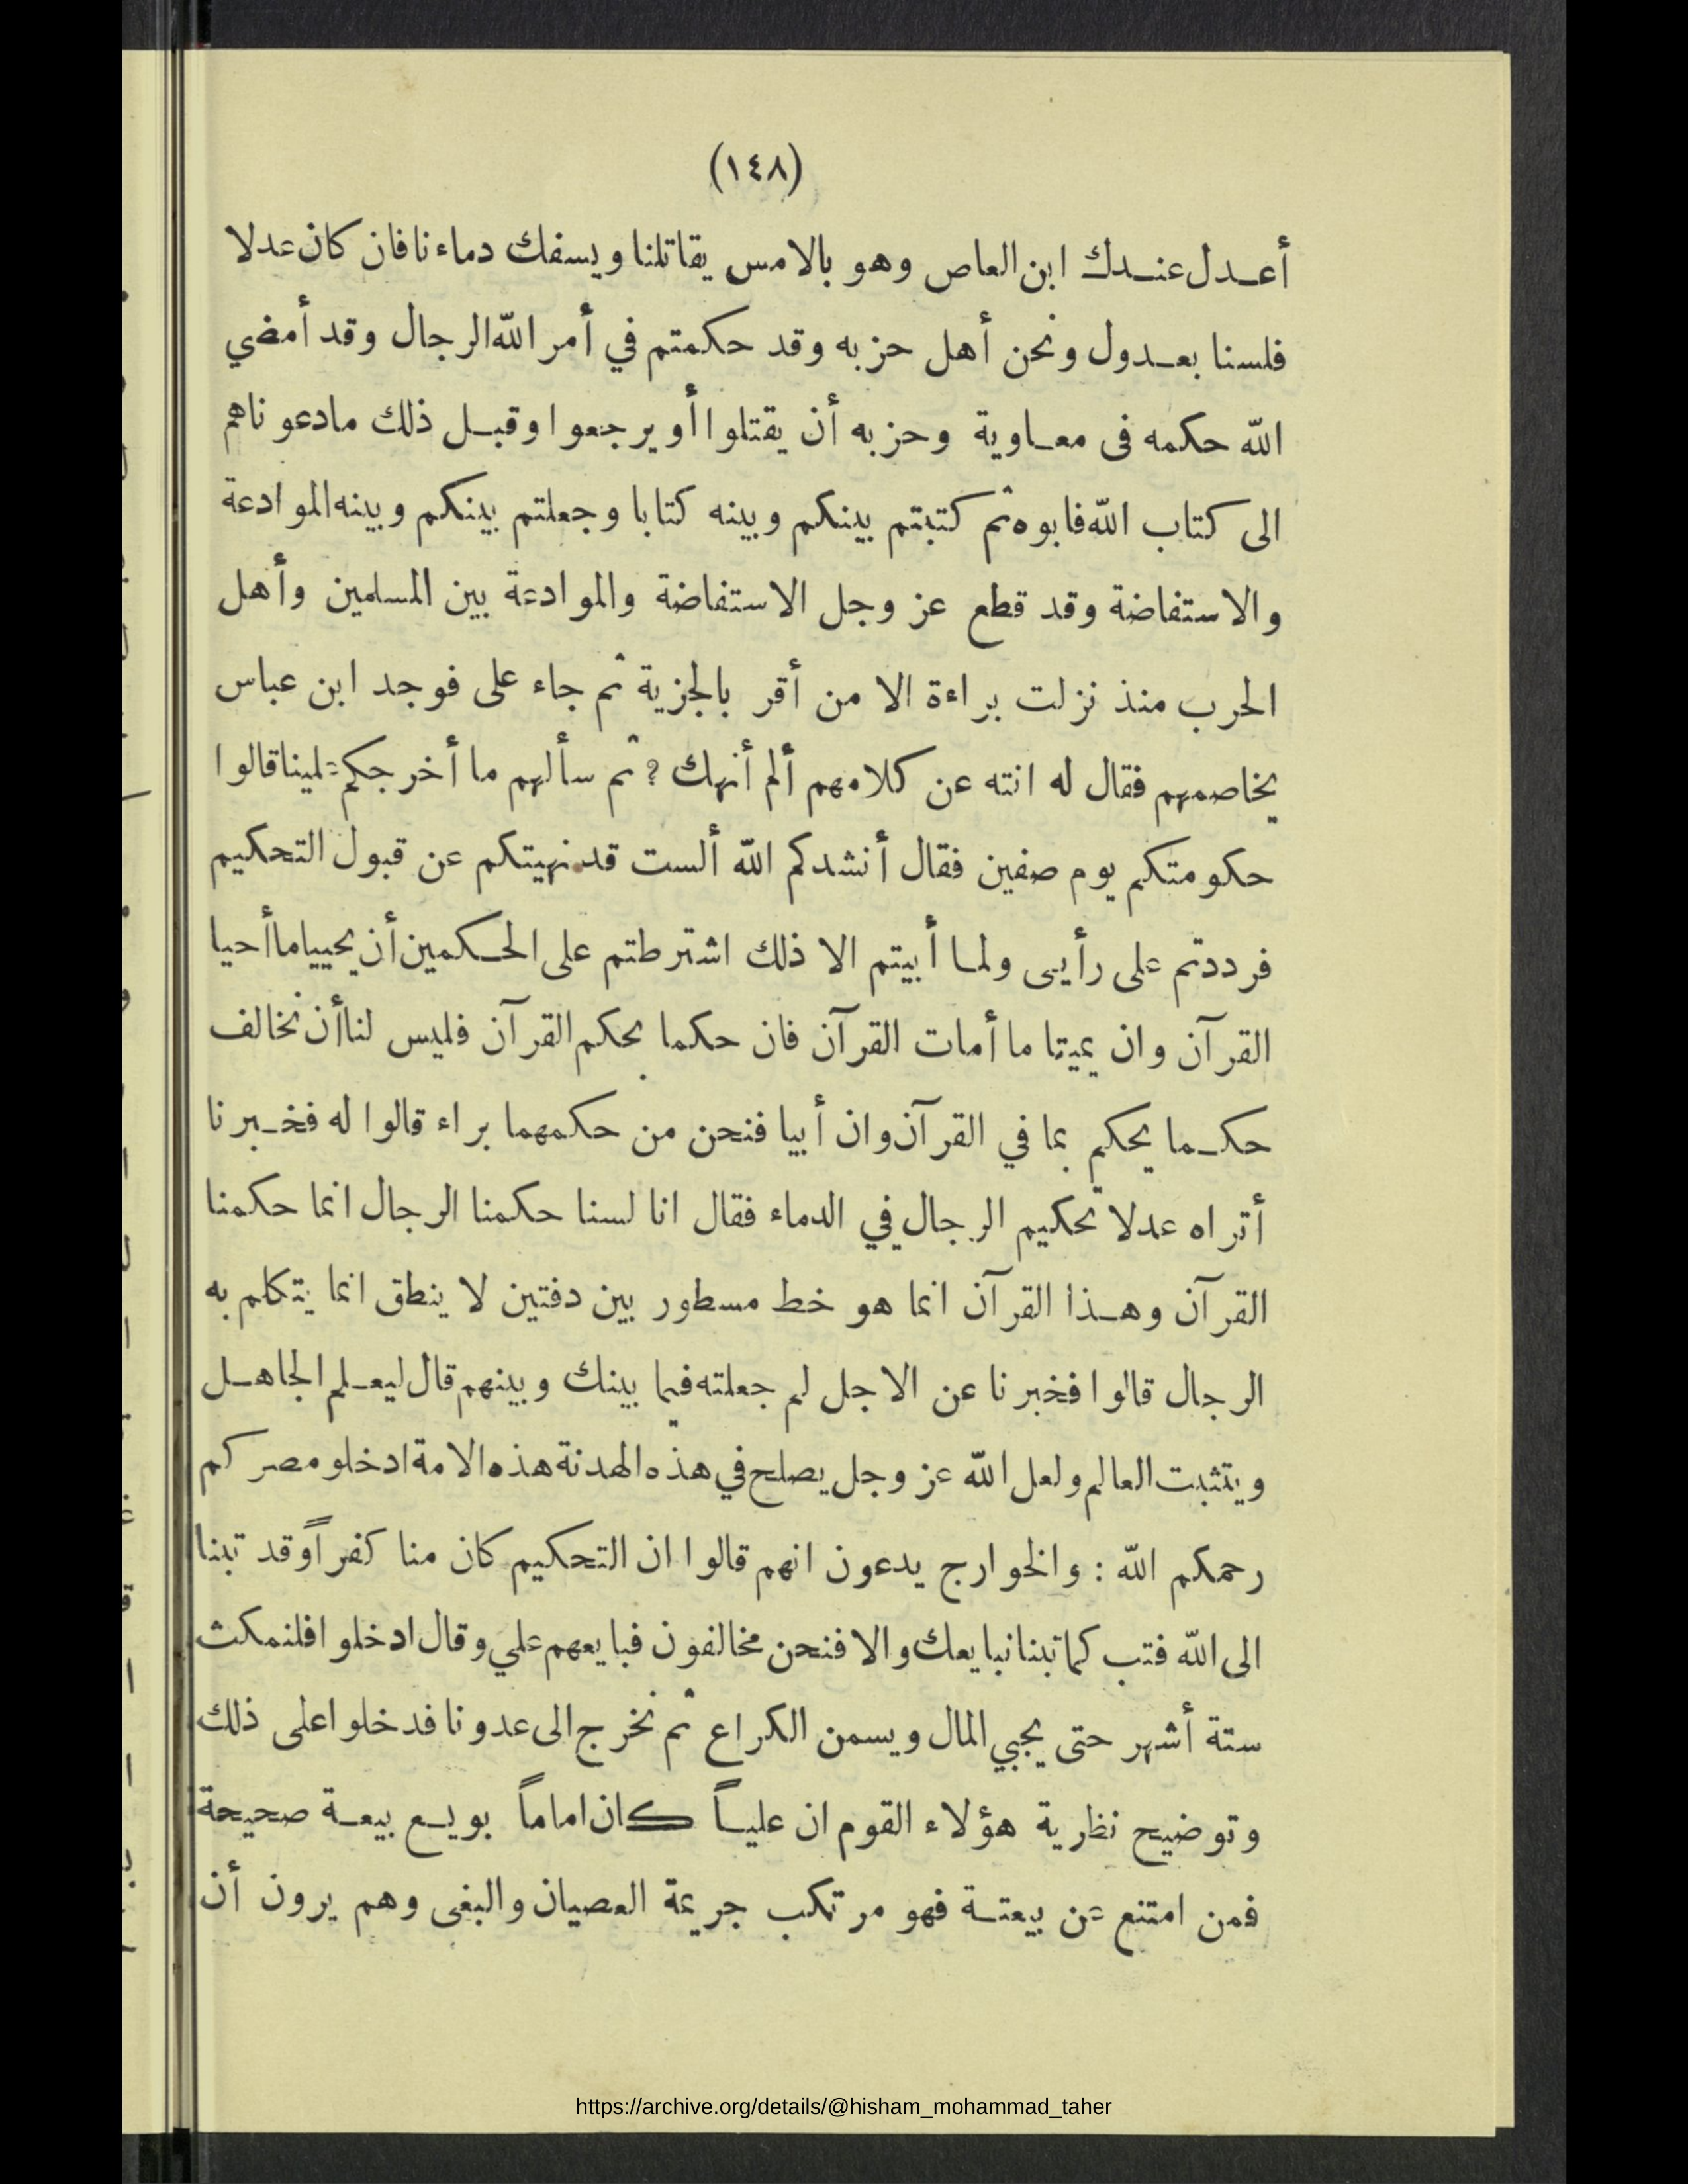 (١٤٨)
أعدل عندك ابن العاص وهو بالامس يقاتلنا ويسفك دماءنا فان كان عدلا
فلسنا بعدول ونحن أهل حزبه وقد حكمتم في أمر الله الرجال وقد أمضي
الله حكمه فى معاوية وحزبه أن يقتلوا أو يرجعوا وقبل ذلك مادعوناهم
الى كتاب الله فابوه ثم كتبتم بينكم وبينه كتابا وجعلتم بينكم وبينه الموادعة
والاستفاضة وقد قطع عز وجل الاستفاضة والموادعة بين المسلمين وأهل
الحرب منذ نزلت براءة الا من أقر بالجزية ثم جاء على فوجد ابن عباس
يخاصمهم فقال له انته عن كلامهم ألم أنهك ؟ ثم سألهم ما أخرجكم علينا قالوا
حكومتكم يوم صفين فقال أنشدكم الله ألست قد نهيتكم عن قبول التحكيم
فرددتم على رأيى ولما أبيتم الا ذلك اشترطتم على الحكمين أن يحييا ما أحيا
القرآن وان يميتا ما أمات القرآن فان حكما بحكم القرآن فليس لنا أن نخالف
حكما يحكم بما في القرآن وان أبيا فنحن من حكمهما براء قالوا له فخبرنا
أتراه عدلا تحكيم الرجال في الدماء فقال انا لسنا حكمنا الرجال انما حكمنا
القرآن وهذا القرآن انما هو خط مسطور بين دفتين لا ينطق انما يتكلم به
الرجال قالوا فخبرنا عن الاجل لم جعلته فيما بينك وبينهم قال ليعلم الجاهل
ويتثبت العالم ولعل الله عز وجل يصلح في هذه الهدنة هذه الامة ادخلو مصركم
رحمكم الله : والخوارج يدعون انهم قالوا ان التحكيم كان منا كفراً وقد تبنا
الى الله فتب كما تبنا نبايعك والا فنحن مخالفون فبايعهم علي وقال ادخلوا فلنمكث
ستة أشهر حتى يجبي المال ويسمن الكراع ثم نخرج الى عدونا فدخلوا على ذلك
وتوضيح نظرية هؤلاء القوم ان علياً كان اماماً بويع بيعة صحيحة
فمن امتنع عن بيعتة فهو مرتكب جريمة العصيان والبغى وهم يرون أن
https://archive.org/details/@hisham_mohammad_taher